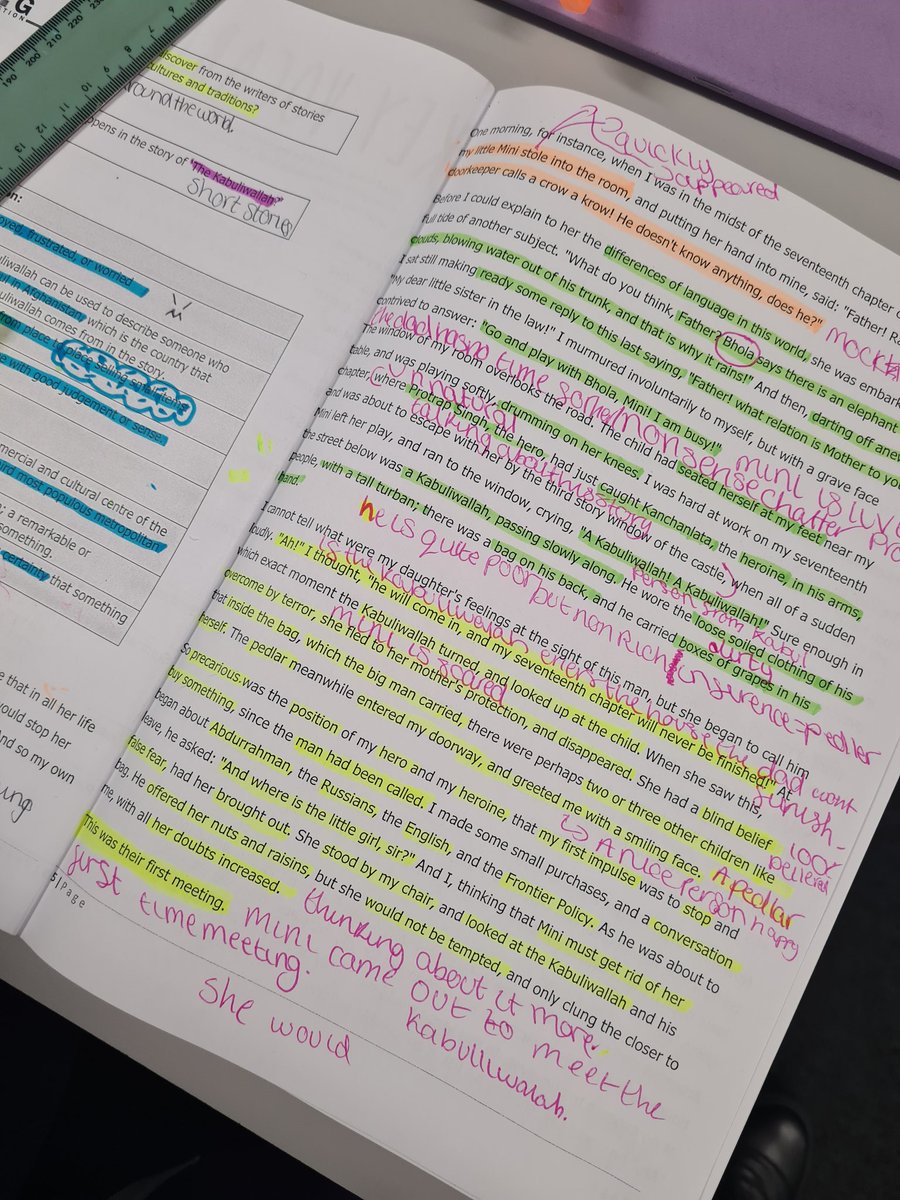 G
TION
190 200 210 220 230
13 12 11 10 9 8 7 6
discover from the writers of stories
cultures and traditions?
round the world.
ppens in the story of "The Kabuliwallah?"
short stories
on:
oyed, frustrated, or worried
uliwallah can be used to describe someone who
in Afghanistan, which is the country that
buliwallah comes from in the story.
from place to place selling
e with good judgement or sense.
mmercial and cultural centre of the
hird most populous metropolitan
; a remarkable or
something.
certainty that something
e that in all her life
ould stop her
And so my own
quickly
appeared
One morning, for instance, when I was in the midst of the seventeenth chapter o
my little Mini stole into the room, and putting her hand into mine, said: "Father! Ra
doorkeeper calls a crow a krow! He doesn't know anything, does he?"
mock
Before I could explain to her the differences of language in this world, she was embark
full tide of another subject. "What do you think, Father? Bhola says there is an elephant
clouds, blowing water out of his trunk, and that is why it rains!" And then, darting off anew
I sat still making ready some reply to this last saying, "Father! what relation is Mother to yo
"My dear little sister in the law!" I murmured involuntarily to myself, but with a grave face
contrived to answer: "Go and play with Bhola, Mini! I am busy!"
the dad has no time
nonsense
mini is
chatter
The window of my room overlooks the road. The child had seated herself at my feet near my
table, and was playing softly, drumming on her knees. I was hard at work on my seventeenth
chapter, where Protrap Singh, the hero, had just caught Kanchanlata, the heroine, in his arms,
talking about his story
and was about to escape with her by the third story window of the castle, when all of a sudden
Mini left her play, and ran to the window, crying, "A Kabuliwallah! A Kabuliwallah!" Sure enough in
person from Kabul
the street below was a Kabuliwallah, passing slowly along. He wore the loose soiled clothing of his
dirty
people, with a tall turban; there was a bag on his back, and he carried boxes of grapes in his
hand.
he is quite poor but non Rich
I cannot tell what were my daughter's feelings at the sight of this man, but she began to call him
loudly. "Ah!" I thought, "he will come in, and my seventeenth chapter will never be finished!" At
enters the house the dad wont
which exact moment the Kabuliwallah turned, and looked up at the child. When she saw this,
mini is scared
overcome by terror, she fled to her mother's protection, and disappeared. She had a blind belief
that inside the bag, which the big man carried, there were perhaps two or three other children like
herself. The pedlar meanwhile entered my doorway, and greeted me with a smiling face.
A pedlar
A nice person happy
So precarious was the position of my hero and my heroine, that my first impulse was to stop and
buy something, since the man had been called. I made some small purchases, and a conversation
began about Abdurrahman, the Russians, the English, and the Frontier Policy. As he was about to
leave, he asked: "And where is the little girl, sir?" And I, thinking that Mini must get rid of her
false fear, had her brought out. She stood by my chair, and looked at the Kabuliwallah and his
bag. He offered her nuts and raisins, but she would not be tempted, and only clung the closer to
me, with all her doubts increased.
thinking about it more.
This was their first meeting.
5 | Page
first time meeting.
mini came out to meet the
kabulliwalah.
She would